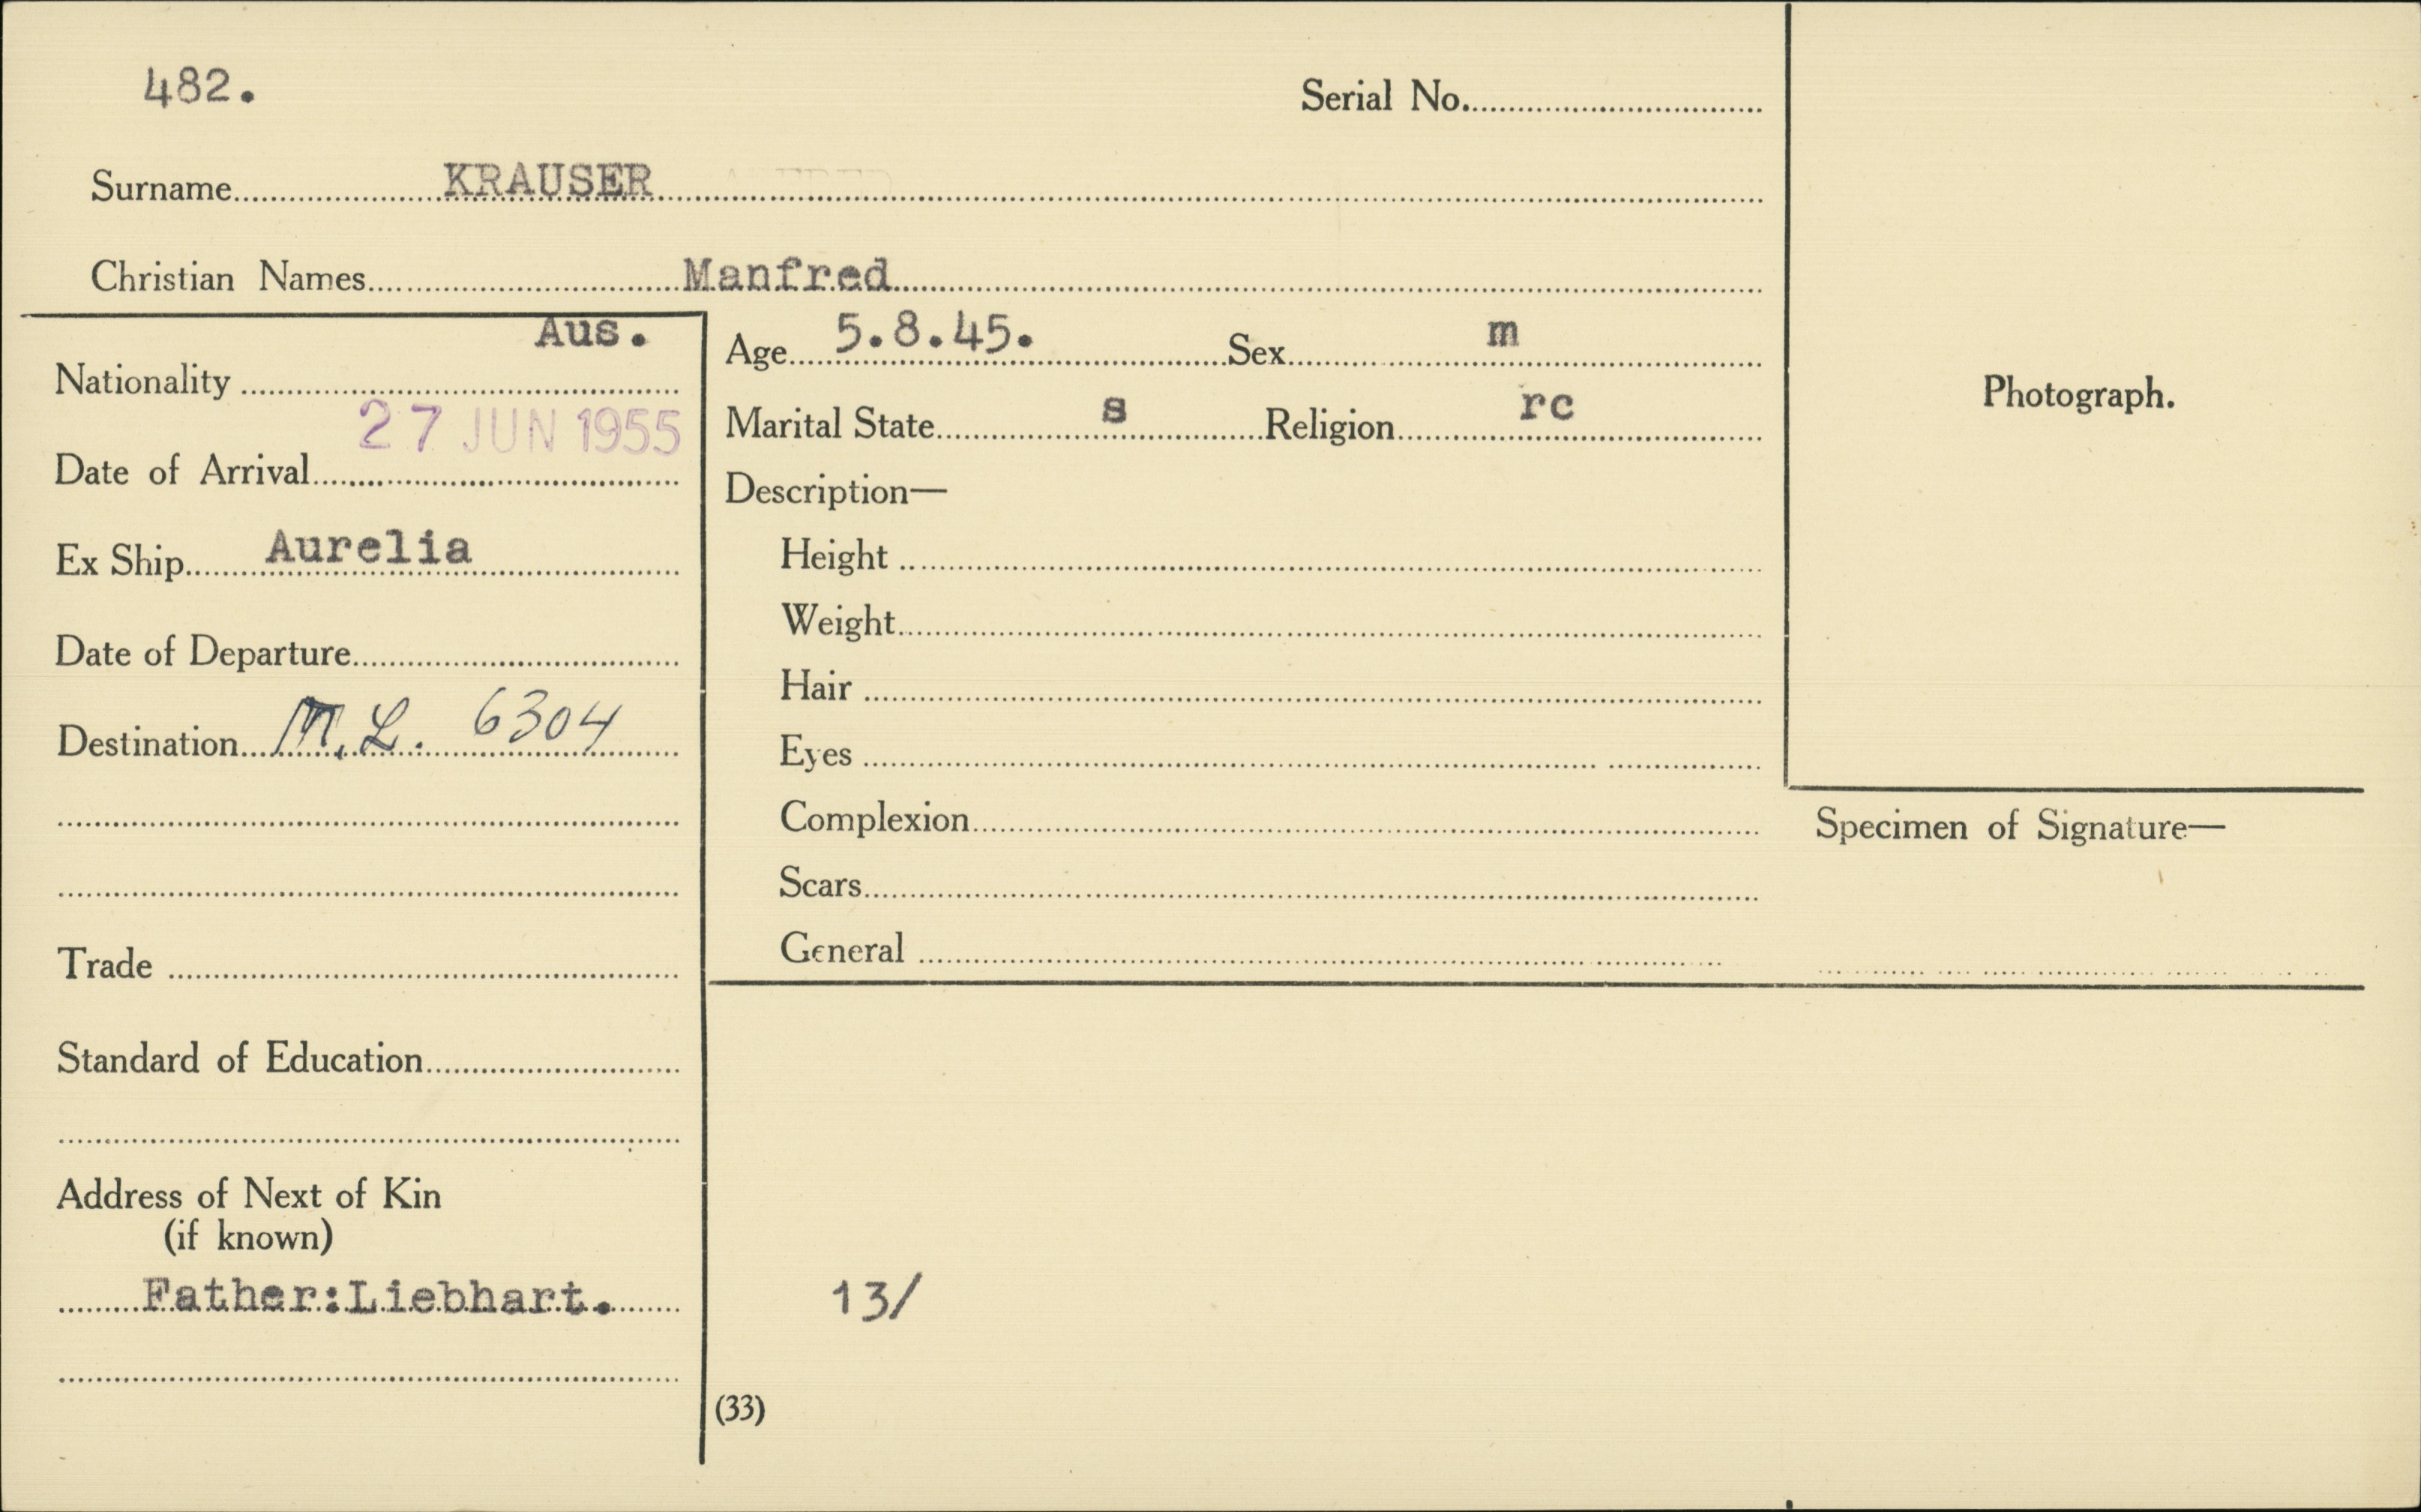 482.
Serial No.
Surname KRAUSER
Christian Names Manfred
Nationality Aus.
Date of Arrival 27 JUN 1955
Ex Ship Aurelia
Date of Departure
Destination M.L. 6304
Trade
Standard of Education
Address of Next of Kin
(if known)
Father:Liebhart.
Age 5.8.45. Sex m
Marital State s Religion rc
Description—
Height
Weight
Hair
Eyes
Complexion
Scars
General
13/
(33)
Photograph.
Specimen of Signature—